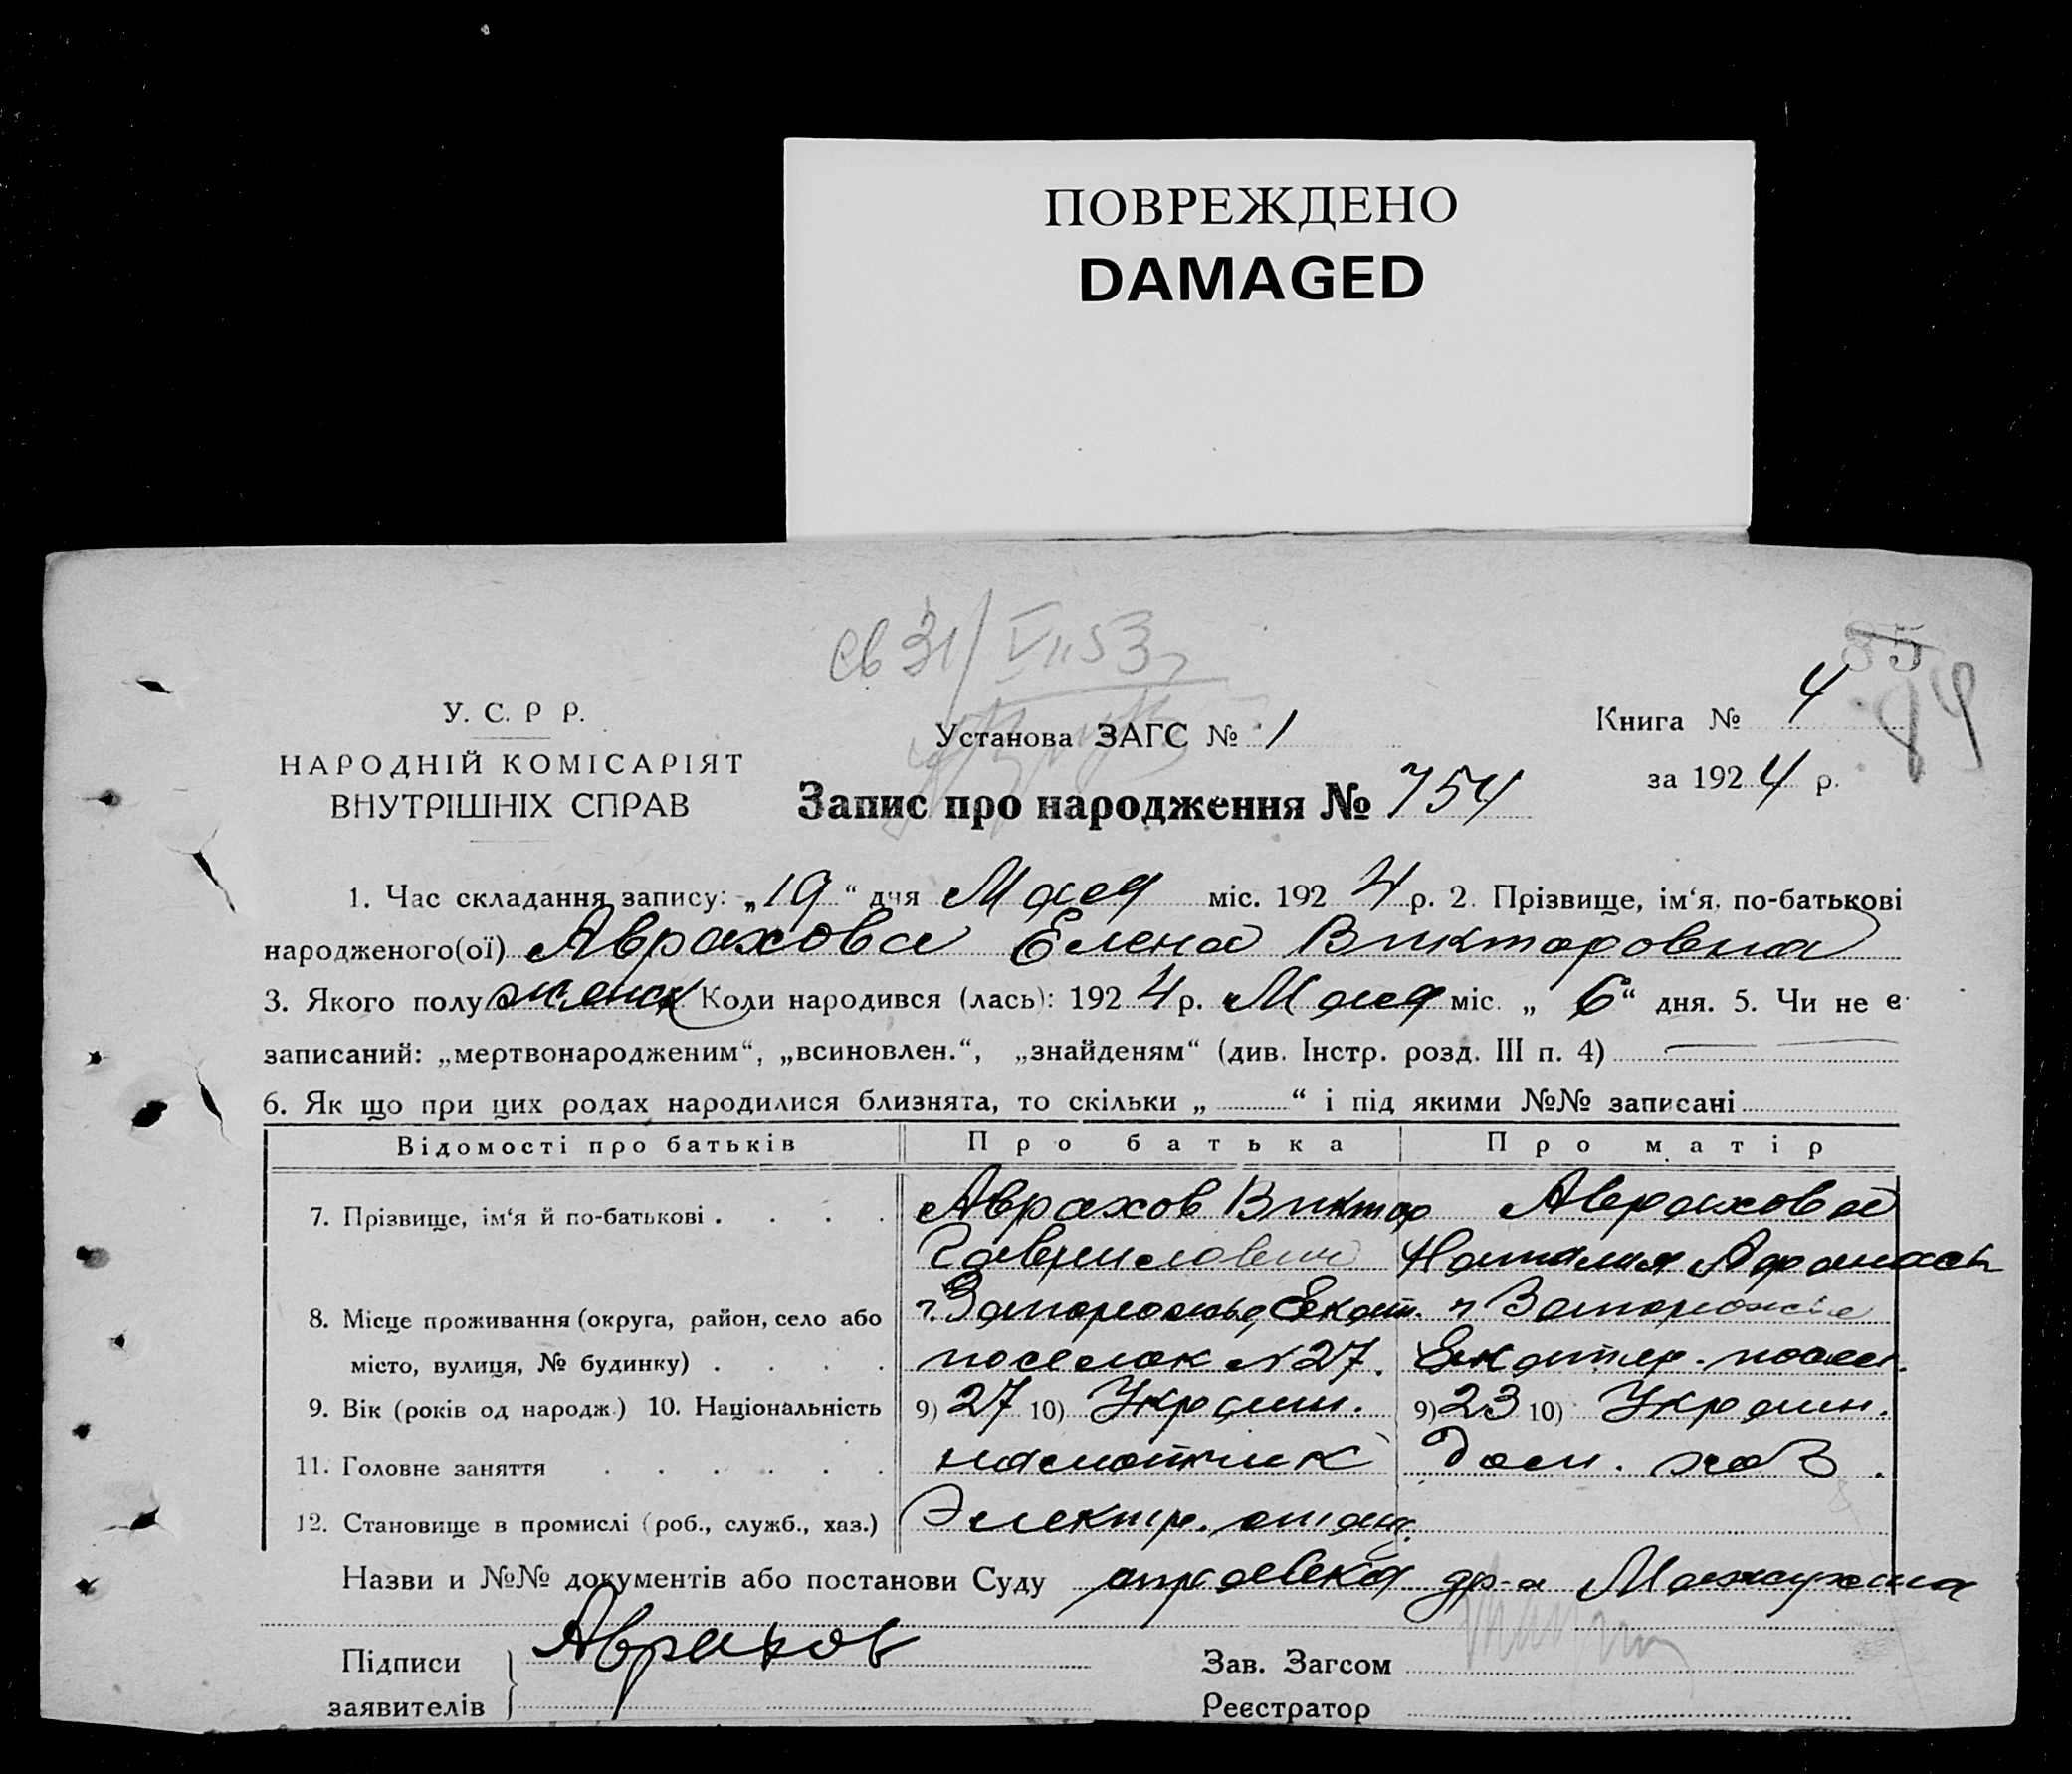 ПОВРЕЖДЕНО
DAMAGED
св 31/VII 53 г
35
84
У. С. Р Р.
НАРОДНІЙ КОМІСАРІЯТ
ВНУТРІШНІХ СПРАВ
Установа ЗАГС № 1
Книга № 4
за 1924 р.
Запис про народження № 754
1. Час складання запису: „19“ дня Мая міс. 1924 р. 2. Прізвище, ім‘я, по-батькові
народженого(ої) Аврахова Елена Викторовна
3. Якого полу женск Коли народився (лась): 1924 р. Мая міс. „6“ дня. 5. Чи не є
записаний: „мертвонародженим“, „всиновлен.“, „знайденям“ (див. Інстр. розд. III п. 4)
6. Як що при цих родах народилися близнята, то скільки „ “ і під якими №№ записані
Відомості про батьків Про батька Про матір
7. Прізвище, ім‘я й по-батькові Аврахов Виктор Аврахова
Гаврилович Наталия Афанась
8. Місце проживання (округа, район, село або г. Запорожье, Екат. г Запорожье
місто, вулиця, № будинку) поселок № 27. Екатер. посел.
9. Вік (років од народж.) 10. Національність 9) 27 10) Украин. 9) 23 10) Украин.
11. Головне заняття дом. хоз.
12. Становище в промислі (роб., служб., хаз.) Электр.
Назви и №№ документів або постанови Суду справка др-а
Підписи Аврахов Зав. Загсом
заявителів Реєстратор